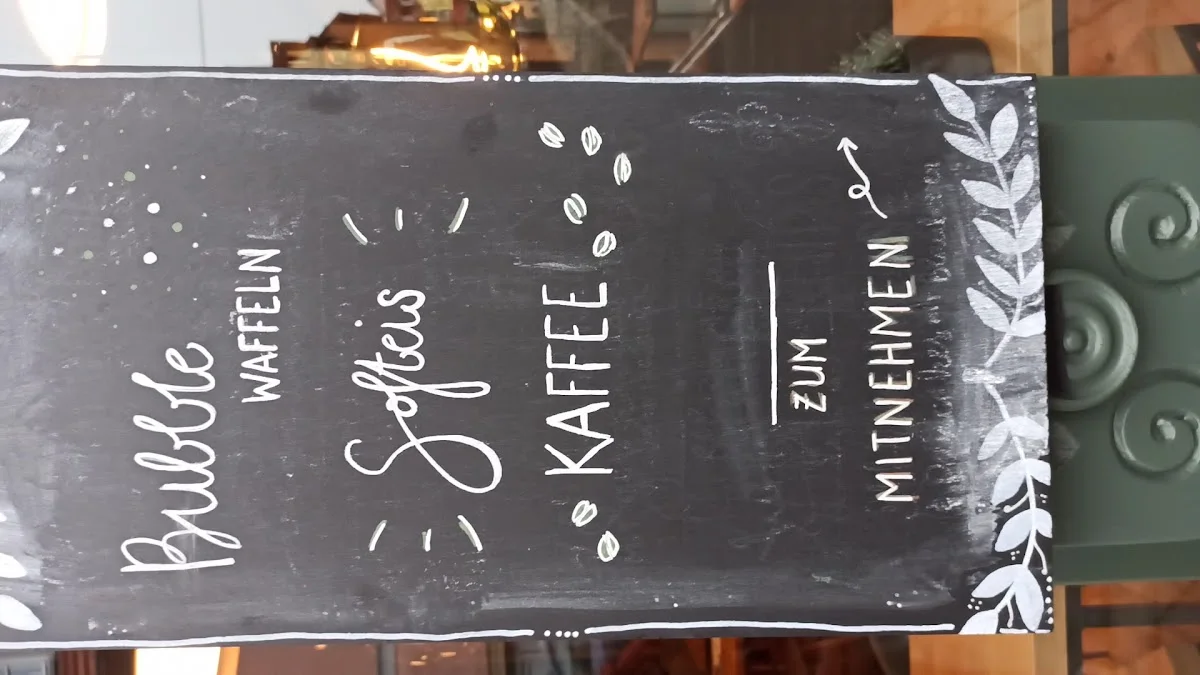 Bubble
WAFFELN
Softeis
KAFFEE
ZUM
MITNEHMEN